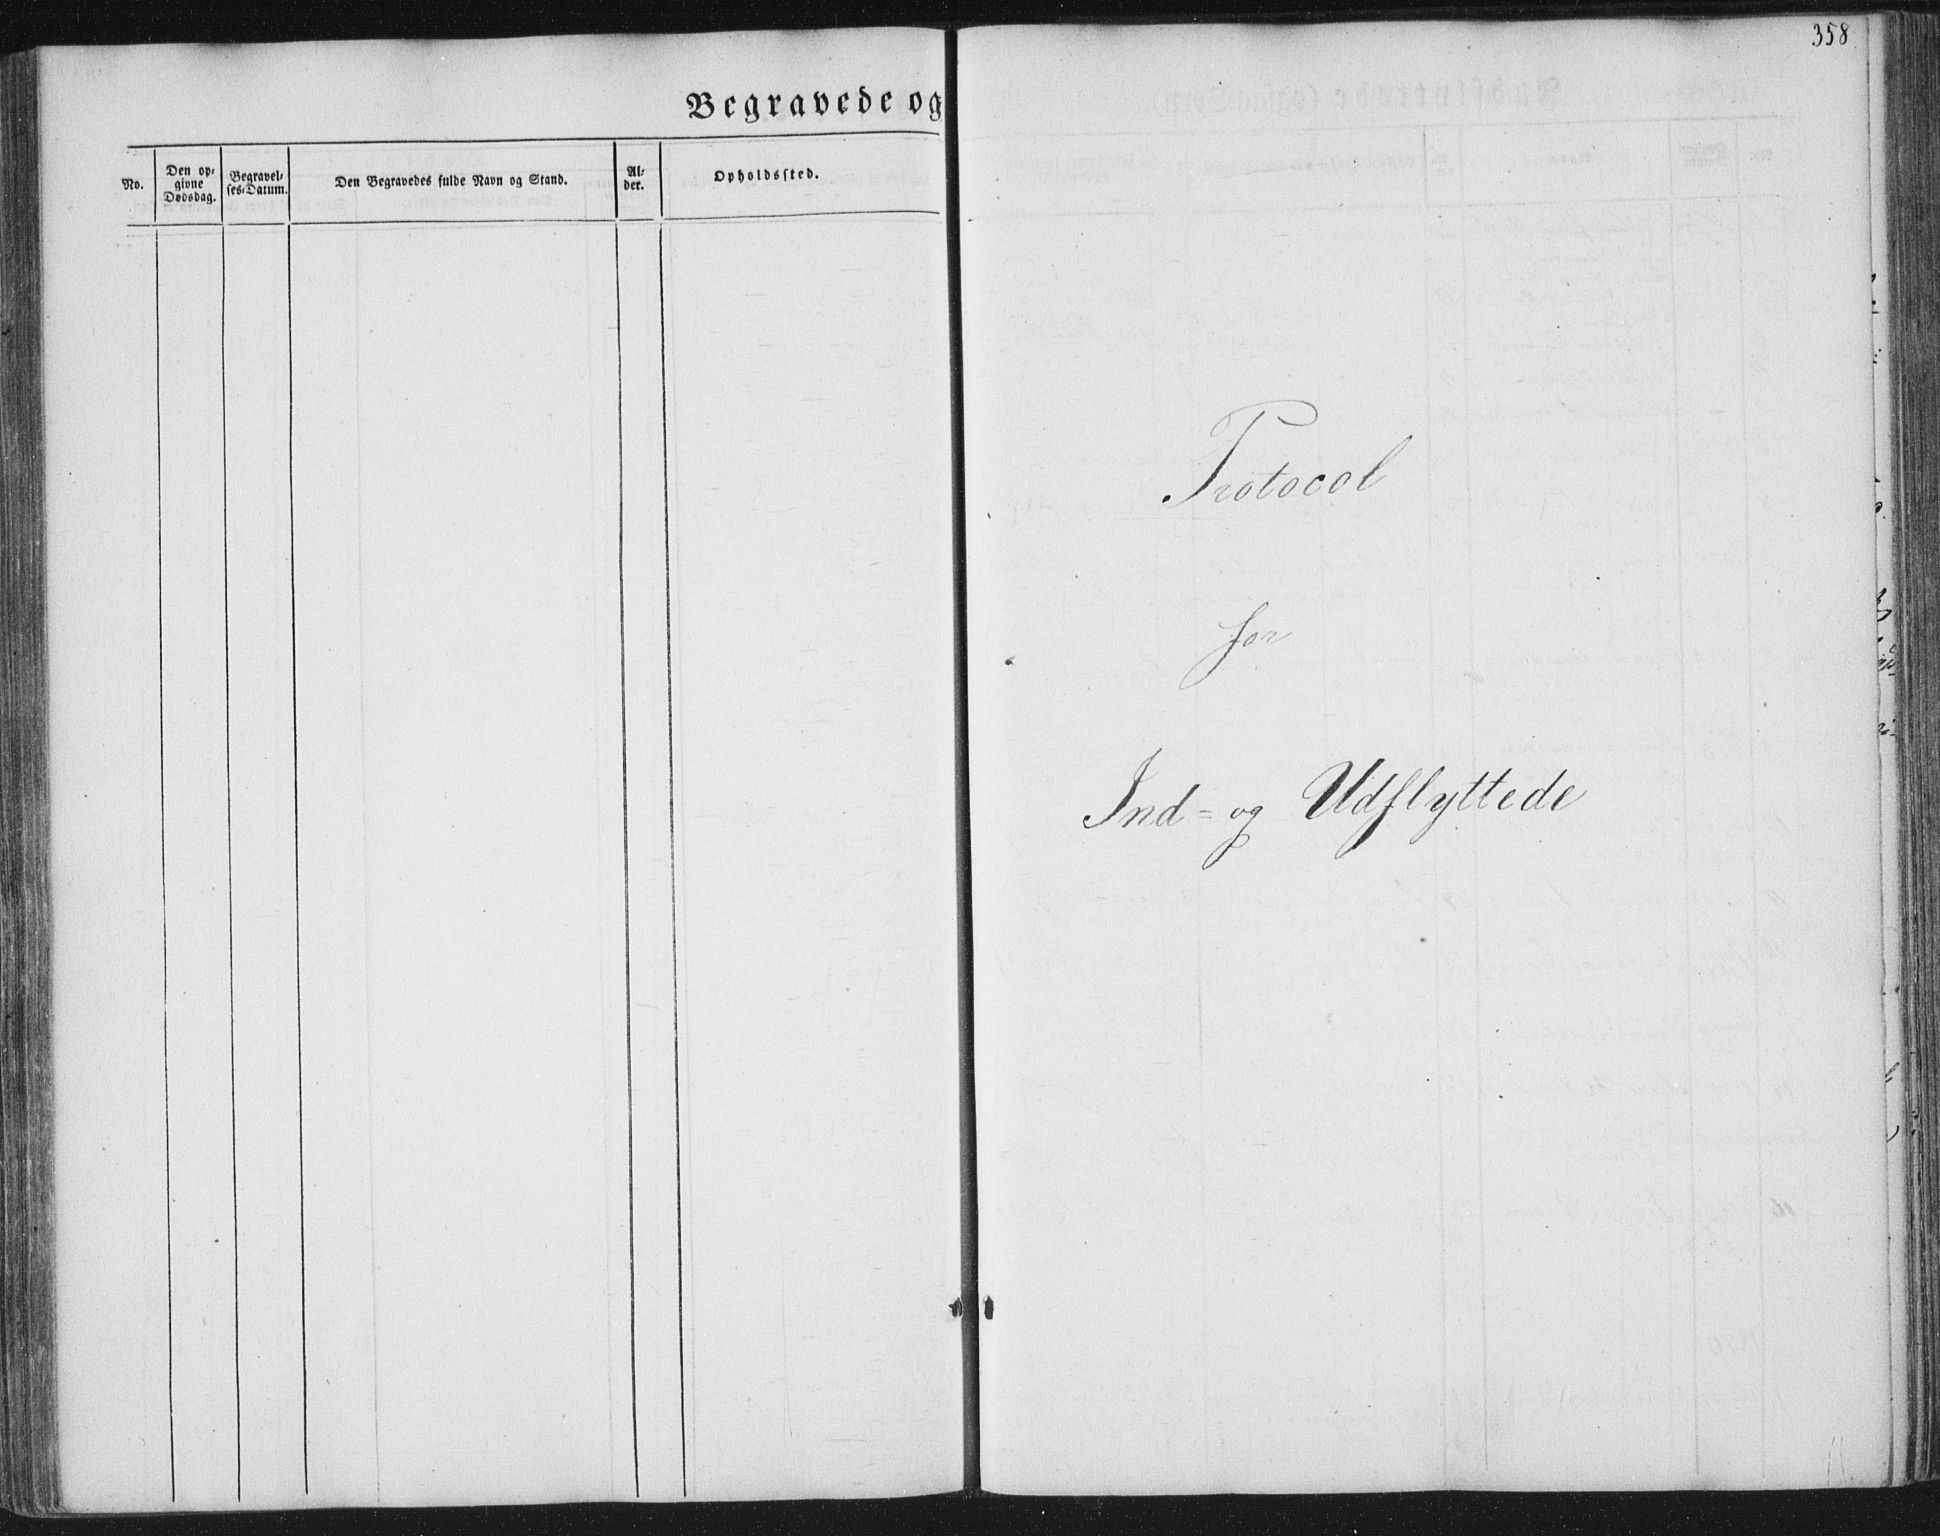 Begravede og
No.
Den op-
givne
Dødsdag.
Begravel-
ses-Datum.
Den Begravedes fulde Navn og Stand.
Al-
der.
Opholdssted.
358
Protocol
for
Ind= og Udflyttede